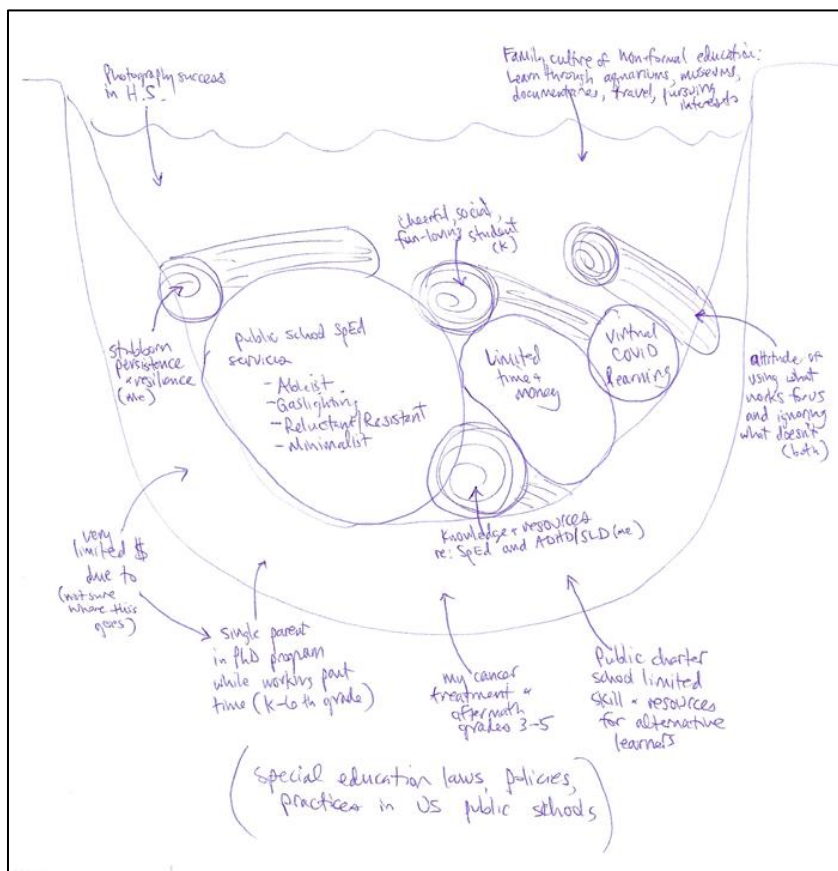 Photography success
in H.S.
Family culture of non-formal education:
Learn through aquariums, museums,
documentaries, travel, pursuing
interests
cheerful, social,
fun-loving student
(K)
stubborn
persistence
& resilience
(me)
public school SpEd
services
- Ableist
- Gaslighting
- Reluctant/Resistant
- Minimalist
Limited
time +
money
virtual
COVID
learning
attitude of
using what
works for us
and ignoring
what doesn't
(both)
Knowledge + resources
re: SpEd and ADHD/SLD (me)
very
limited $
due to
(not sure
where this
goes)
single parent
in PhD program
while working part
time (K-6th grade)
my cancer
treatment &
aftermath
grades 3-5
Public charter
school limited
skill & resources
for alternative
learners
(special education laws, policies,
practices in US public schools)